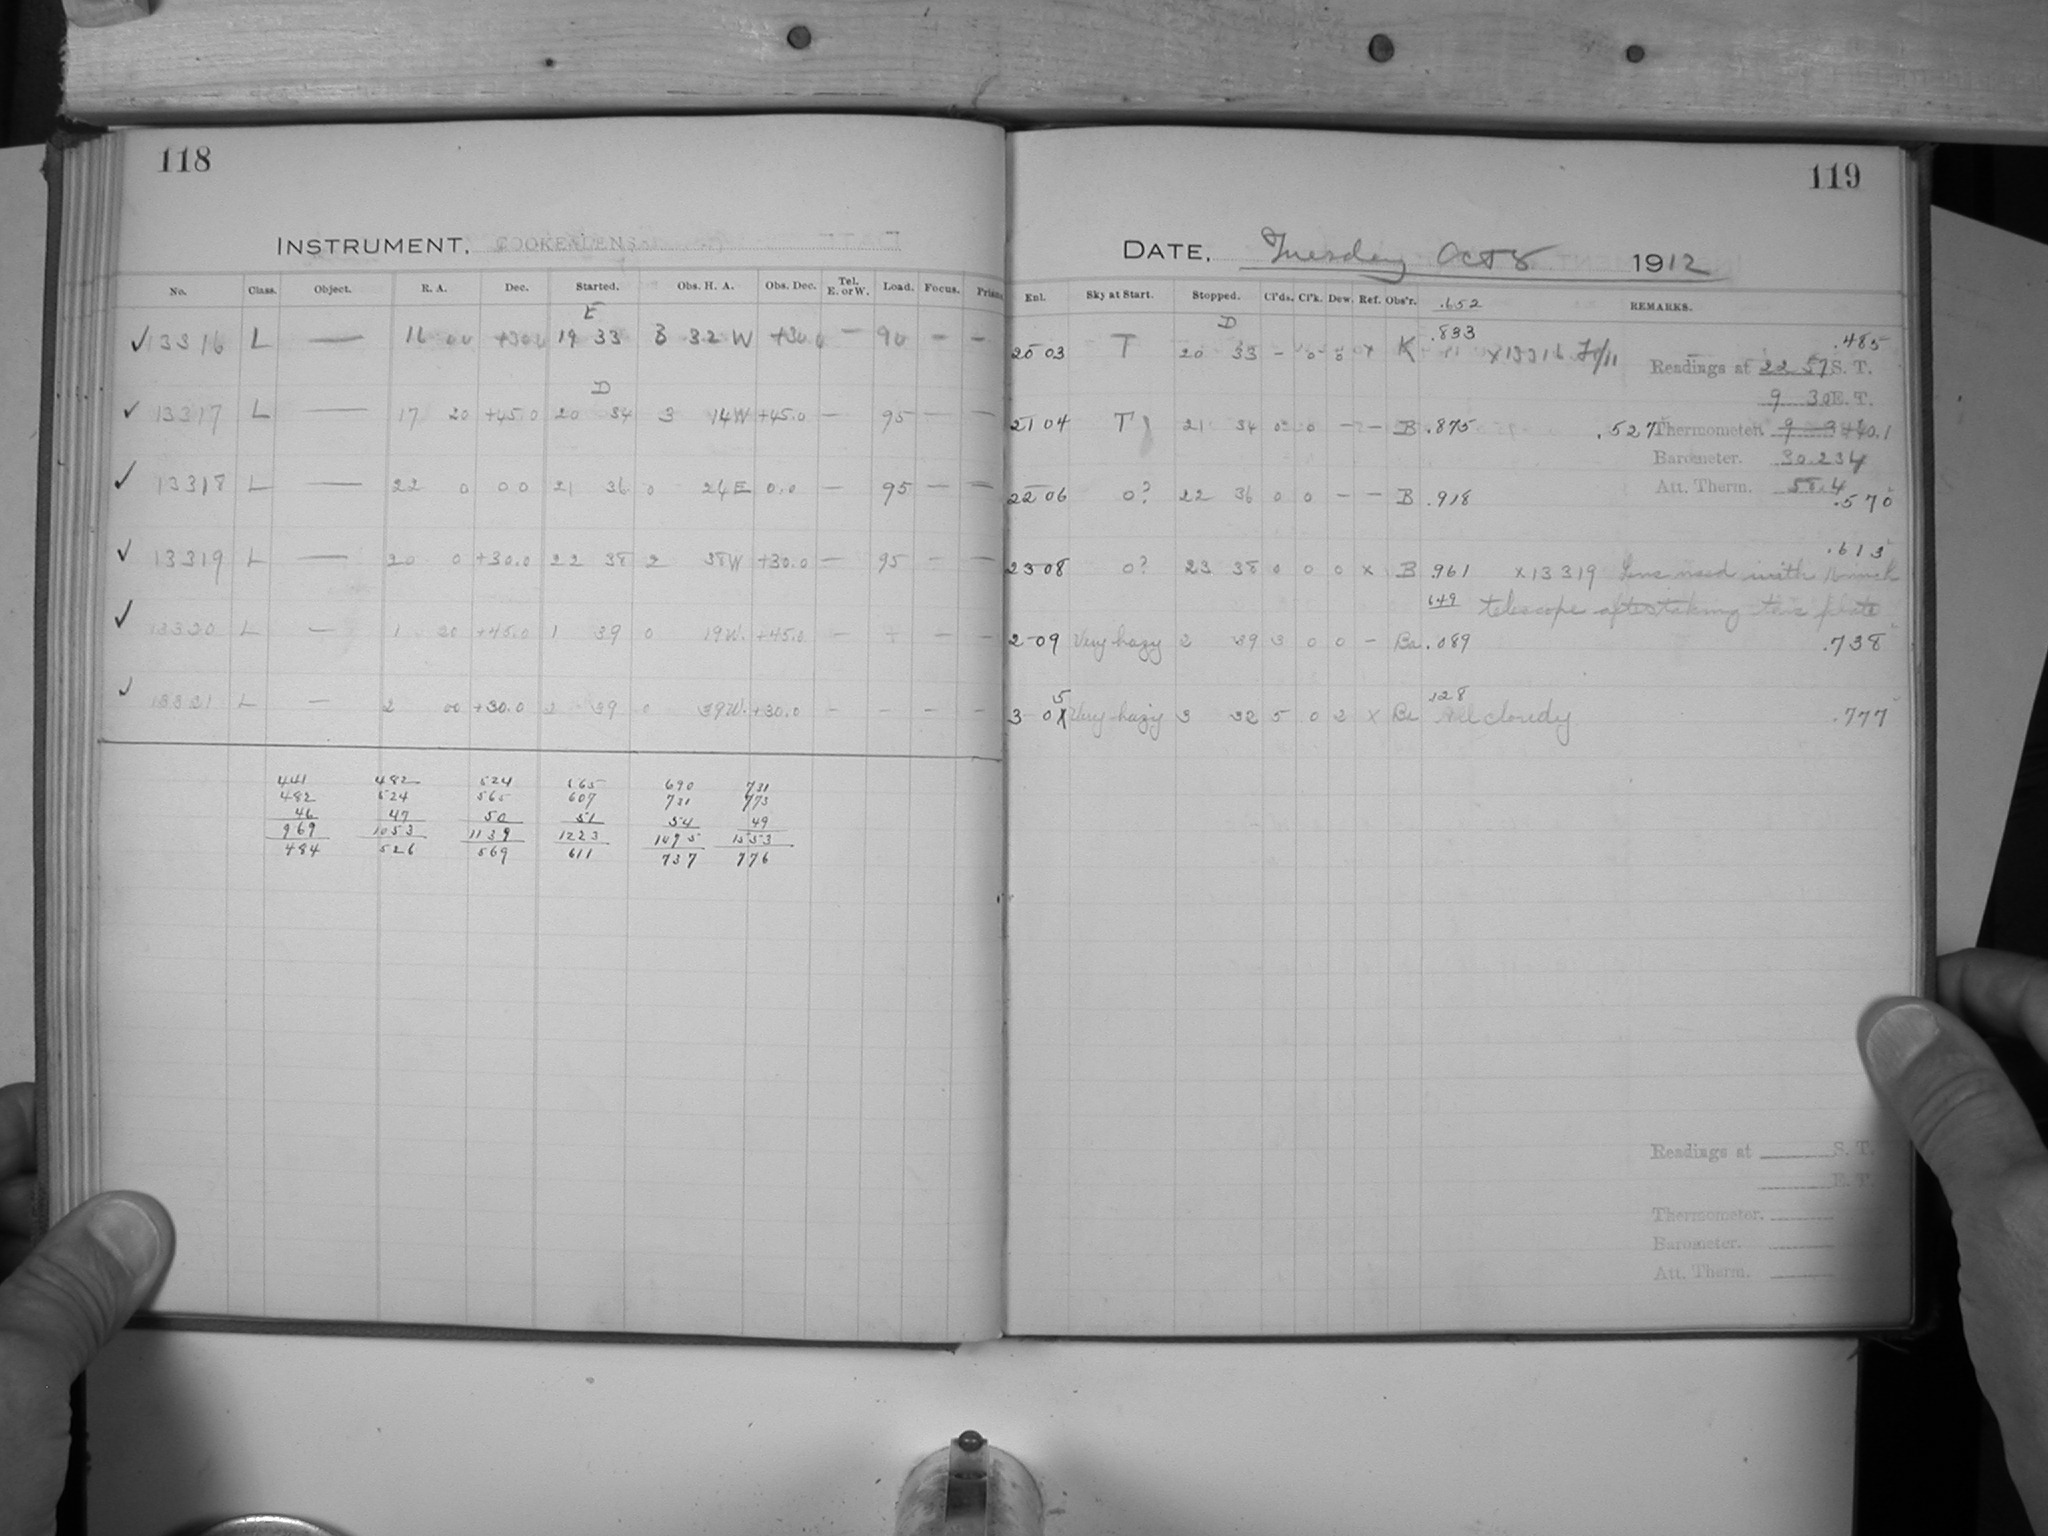 118
INSTRUMENT. COOKE LENS
No. Class. Object. R. A. Dec. Started. Obs. H. A. Obs. Dec. Tel. E. or W. Load. Focus.
E
✓ 13316 L — 16 00 +30.0 19 33 3 32 W +30.0 — 90 — —
D
✓ 13317 L — 17 20 +45.0 20 34 3 14W +45.0 — 95 — —
✓ 13318 L — 22 0 0 0 21 36 0 24E 0.0 — 95 — —
✓ 13319 L — 20 0 +30.0 22 38 2 38W +30.0 — 95 — —
✓ 13320 L — 1 20 +45.0 1 39 0 19W. +45.0 — + — —
✓ 13321 L — 2 00 +30.0 2 39 0 39W. +30.0 — — — —
441 482 524 565 690 731
482 524 565 607 731 773
46 47 50 51 54 49
969 1053 1139 1223 1495 1553
484 526 569 611 737 776
119
DATE. Tuesday Oct 8 1912
Enl. Sky at Start. Stopped. Cl'ds. Cl'k. Dew. Ref. Obs'r. .652 REMARKS.
D .833 .485
20 03 T 20 33 — 0 0 x K x13316
Readings at 22 57 S. T.
9 30 E. T.
21 04 T 21 34 0 0 — — B .875 .527
Thermometer.
Barometer. 30.234
Att. Therm. 58.4
22 06 0? 22 36 0 0 — — B .918 .570
.613
23 08 0? 23 38 0 0 0 x B .961 x13319 Lens used with
649 telescope after taking this plate
2 09 Very hazy 2 39 3 0 0 — Ba .089 .738
5 .128
3 0 Very hazy 3 32 5 0 2 x Be All cloudy .777
Readings at S. T.
E. T.
Thermometer.
Barometer.
Att. Therm.